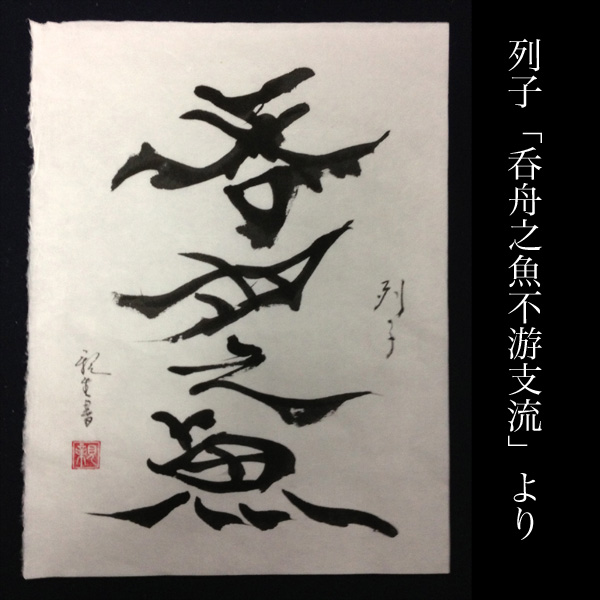 列子「呑舟之魚不游支流」より
列子
呑舟之魚